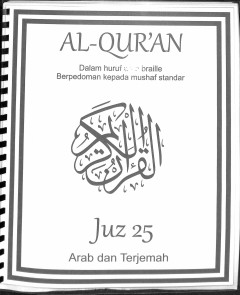 AL-QUR'AN
Dalam huruf braille
Berpedoman kepada mushaf standar
القرآن الكريم
Juz 25
Arab dan Terjemah